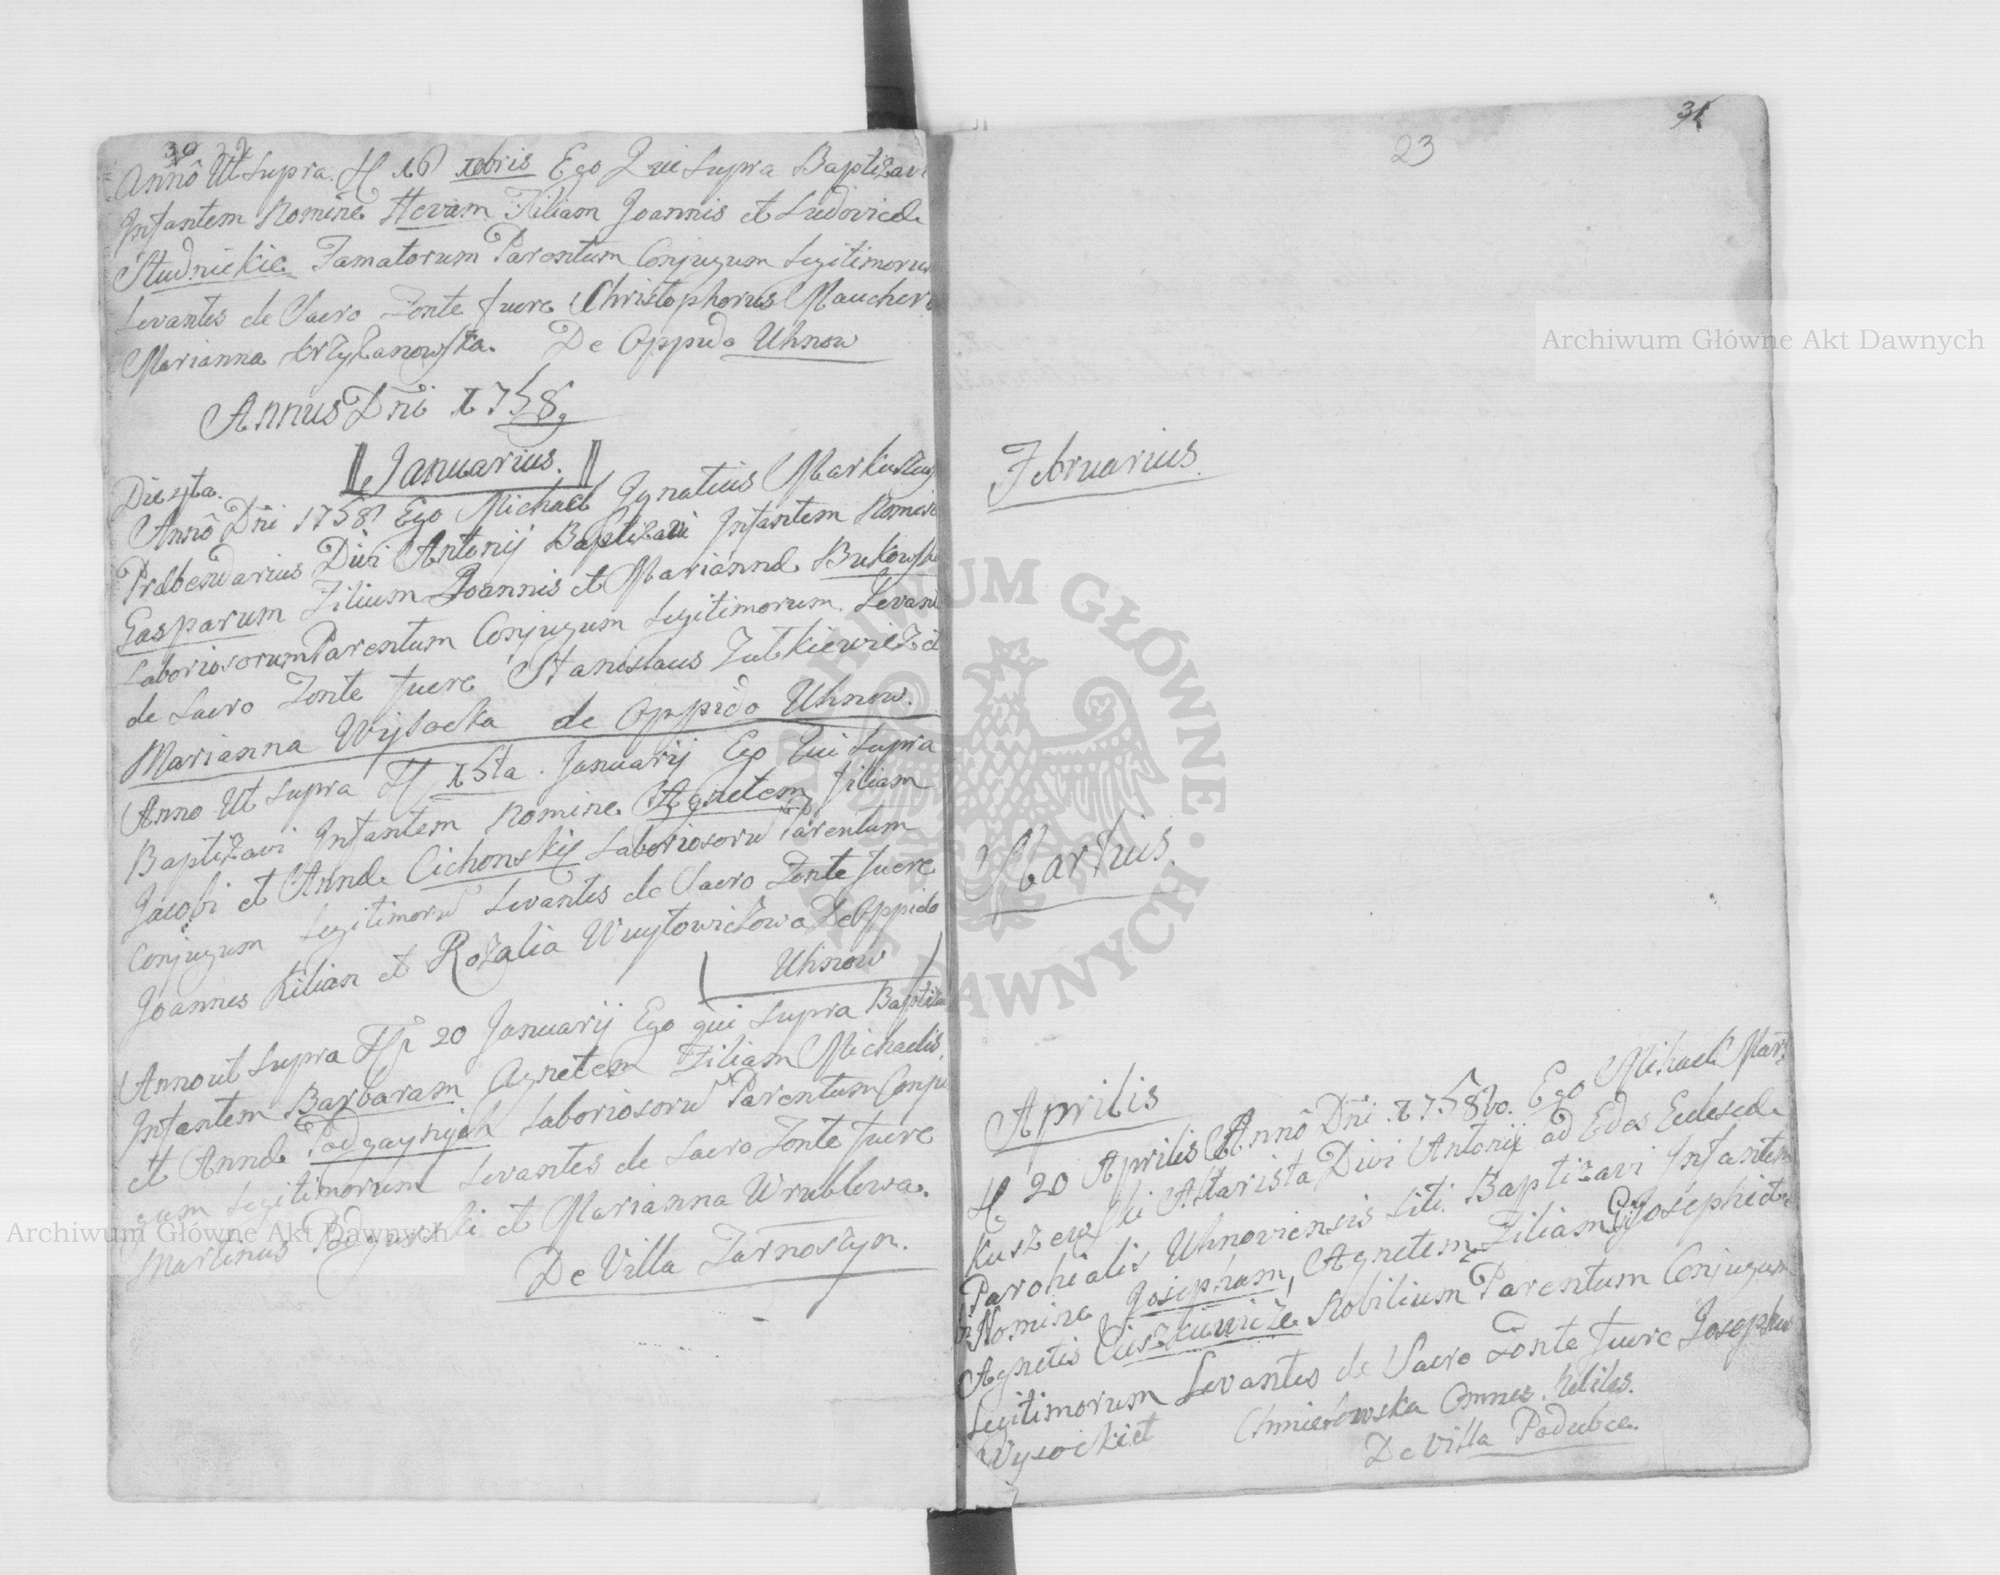 30
Annô Ut Supra. H 16 Xbris Ego Qui Supra Baptizavi
Infantem Nomine Hevam Filiam Joannis et Ludovicæ
Studnickie Famatorum Parentum Conjugum Legitimoru
Levantes de Sacro Fonte fuere Christophorus Maucher
Marianna Krzyżanowska. De Oppido Uhnow
Annus Dñi 1758
Januarius.
Die
Annô Dñi 1758 Ego Michael Ignatius Markusze
Præbendarius Divi Antonij Baptizavi Infantem Nomine
Gasparum Filium Joannis et Mariannæ Bukowsk
Laboriosorum Parentum Conjugum Legitimorum. Levant
de Sacro Fonte fuere Stanislaus Zutkiewicz et
Marianna Wysocka de Oppido Uhnow.
Anno Ut Supra H 15ta. Januarij Ego Qui Supra
Baptizavi Infantem Nomine Agnetem filiam
Jacobi et Annæ Cichonskij Laboriosorū Parentum
Conjugum Legitimorū Levantes de Sacro Fonte fuere
Joannes Kilian et Rozalia Wuytowiczowa De Oppido
Uhnow
Anno ut Supra H 20 Januarij Ego qui Supra Baptiza
Infantem Barbaram Agnetem Filiam Michaelis
et Annæ Podgaynych Laboriosorū Parentum Conju
gum Legitimorum Levantes de Sacro Fonte fuere
Martinus Podgurski et Marianna Wrublowa.
De Villa Tarnoszyn.
31
23
Februarius.
Martius.
Aprilis
H 20 Aprilis Annô Dñi. 1758vo. Ego Mihael Mar
kuszewski Altarista Divi Antonij ad Edes Eclesæ
Parohialis Uhnoviensis Liti. Baptizavi Infantem
Nomine Josepham, Agnetem Filiam Josephi et
Agnetis Nobilium Parentum Conjugum
Legitimorum Levantes de Sacro Fonte fuere Josephus
Wysocki et Chmielowska Omnes Nobiles.
De Villa Podubce.
Archiwum Główne Akt Dawnych
Archiwum Główne Akt Dawnych
ARCHIWUM GŁÓWNE · AKT DAWNYCH ·